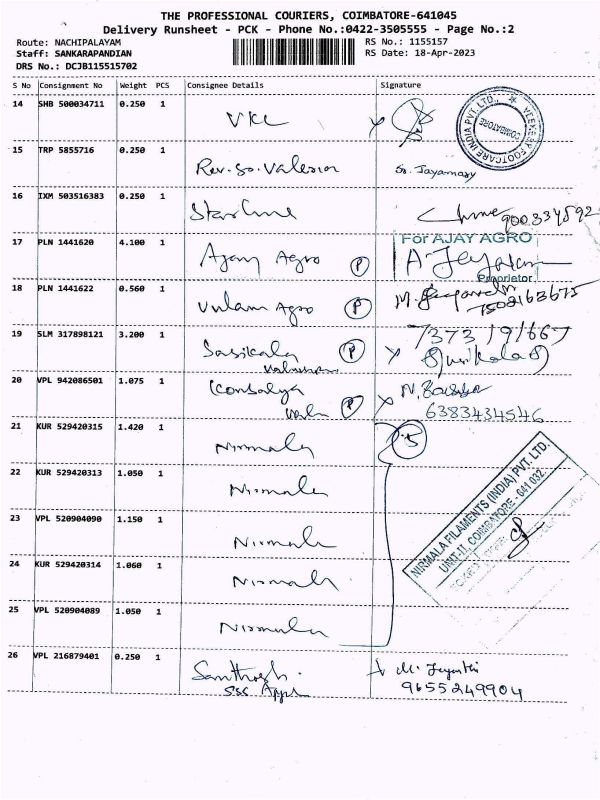 THE PROFESSIONAL COURIERS, COIMBATORE-641045
Delivery Runsheet - PCK - Phone No.:0422-3505555 - Page No.:2
Route: NACHIPALAYAM
Staff: SANKARAPANDIAN
DRS No.: DCJB115515702
RS No.: 1155157
RS Date: 18-Apr-2023
S No Consignment No Weight PCS Consignee Details Signature
14 SHB 500034711 0.250 1 VKC
PVT. LTD., FOOTCARE INDIA COIMBATORE
15 TRP 5855716 0.250 1 Rev. Sr. Valerian Sr. Jayamary
16 IXM 503516383 0.250 1 Starline
17 PLN 1441620 4.100 1 Ajay Agro P
For AJAY AGRO
Proprietor
18 PLN 1441622 0.560 1 Agro P
7502163675
19 SLM 317898121 3.200 1 Sasikala P
7373191667
Sasikala
20 VPL 942086501 1.075 1 P
6383434546
21 KUR 529420315 1.420 1 Nirmala 5
22 KUR 529420313 1.050 1 Nirmala
23 VPL 520904090 1.150 1 Nirmala
24 KUR 529420314 1.060 1 Nirmala
25 VPL 520904089 1.050 1 Nirmala
NIRMALA FILAMENTS (INDIA) PVT. LTD.
UNIT-II, COIMBATORE - 641 032.
26 VPL 216879401 0.250 1 Santhosh. M. Jayanthi
SSS Appa 9655249904